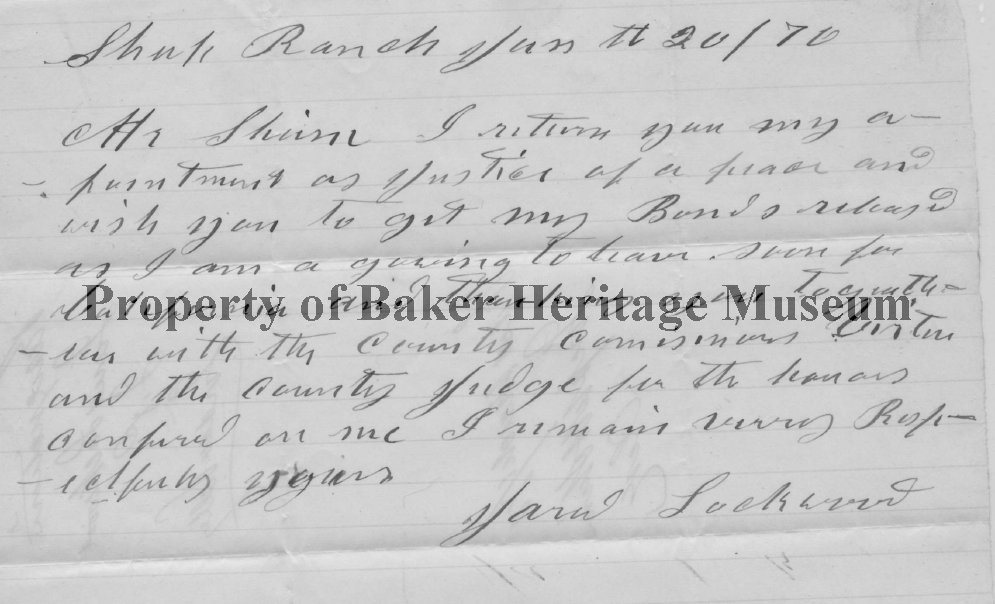 Ranch Jan th 20/70
Mr I return you my a-
- pointment as Justice of a peace and
wish you to get my Bonds releasd
as I am a gowing to leave soon for
and thanking you togeath-
Property of Baker Heritage Museum
- er with the County
and the County Judge for the honors
confered on me I remain verry Resp-
- ectfuly yours
Jared Lockwood